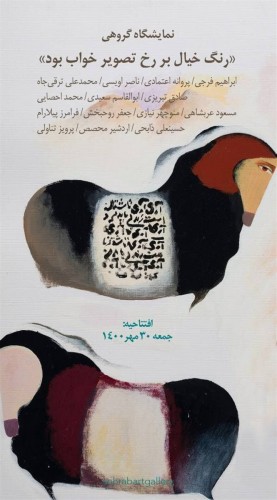 نمایشگاه گروهی
«رنگ خیال بر رخ تصویر خواب بود»
ابراهیم فرجی/ پروانه اعتمادی/ ناصر اویسی/ محمدعلی ترقی‌جاه
صادق تبریزی/ ابوالقاسم سعیدی/ محمد احصایی
مسعود عربشاهی/ منوچهر نیازی/ جعفر روحبخش/ فرامرز پیلارام
حسینعلی ذابحی/ اردشیر محصص/ پرویز تناولی
افتتاحیه:
جمعه ۳۰ مهر ۱۴۰۰